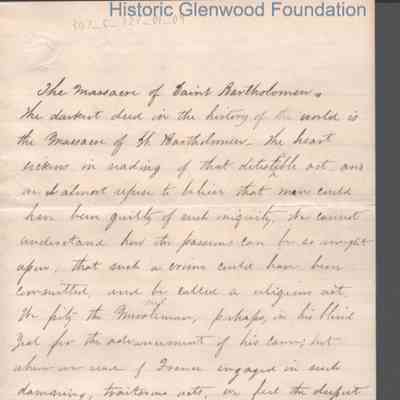 Historic Glenwood Foundation
The Massacre of Saint Bartholomew.
The darkest deed in the history of the world is
the Massacre of St. Bartholomew. The heart
sickens in reading of that detestible act and
we almost refuse to believe that man could
have been guilty of such iniquity, we cannot
understand how the passions can be so wrought
upon, that such a crime could have been
committed, and be called a religious act,
We pity the Mussleman, perhaps, in his blind
zeal for the advancement of his cause; but
when we read of France engaged in such
damning, traitorous acts, we feel the deepest